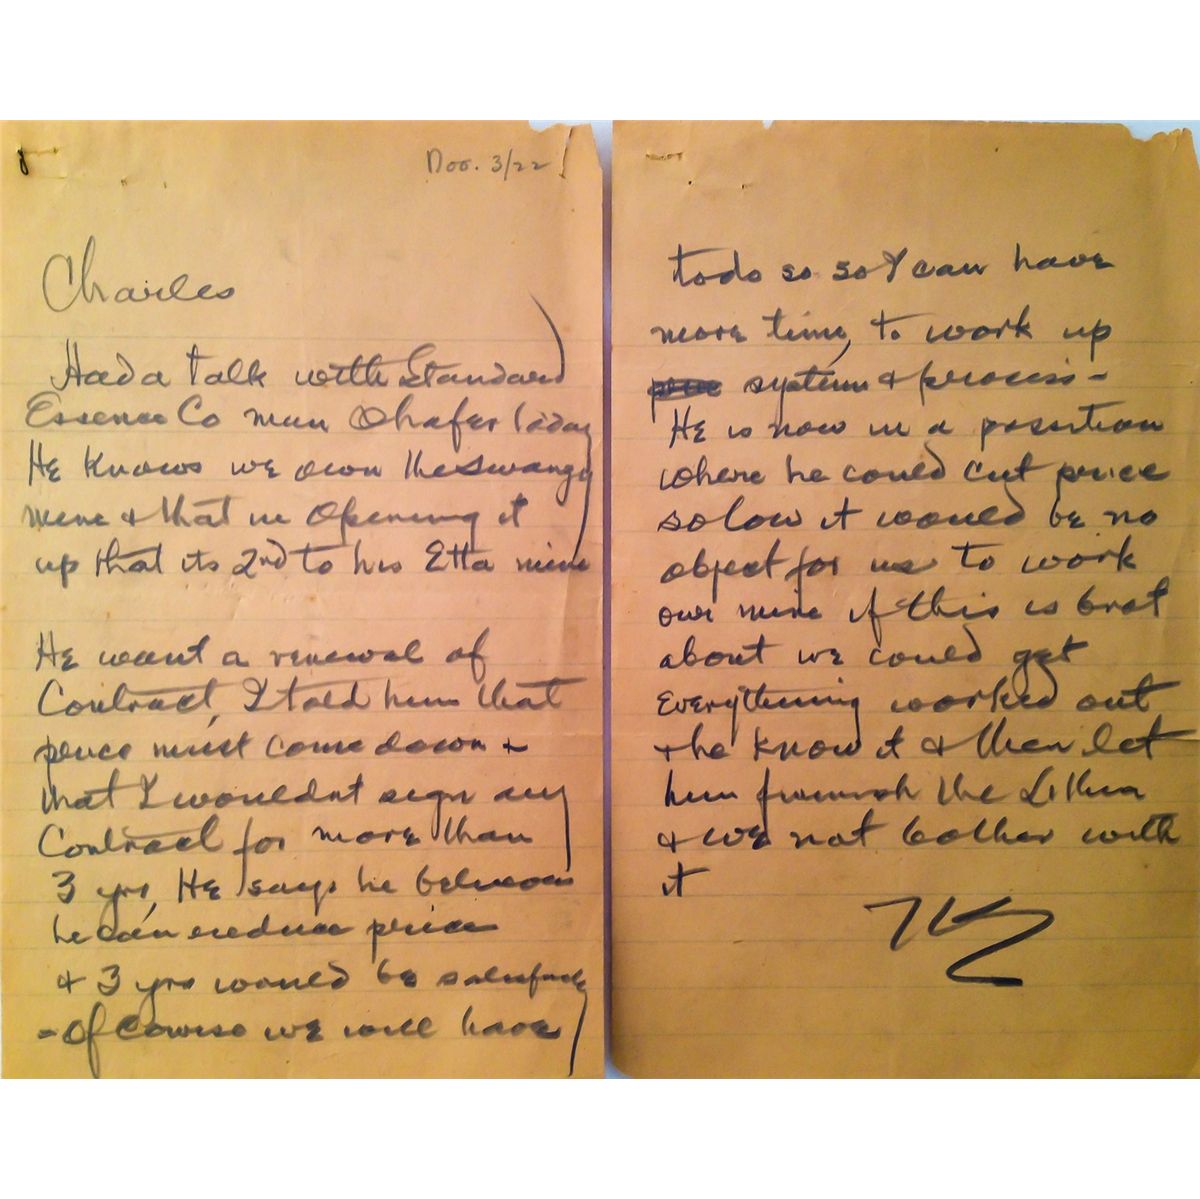 Dec. 3/22
Charles
Had a talk with Standard
Essence Co man today
He knows we own the Swanzy
mine & that in opening it
up that its 2nd to his Etta mine
He want a renewal of
Contract, I told him that
price must come down &
that I wouldnt sign any
Contract for more than
3 yrs, He says he believes
he can reduce price
& 3 yrs would be satisfac
- Of course we will have
to do so so I can have
more time, to work up
system & process -
He is now in a possition
where he could cut price
so low it would be no
object for us to work
our mine if this is brot
about we could get
Everything worked out
& he know it & then let
him furnish the Lithia
& we not bother with
it